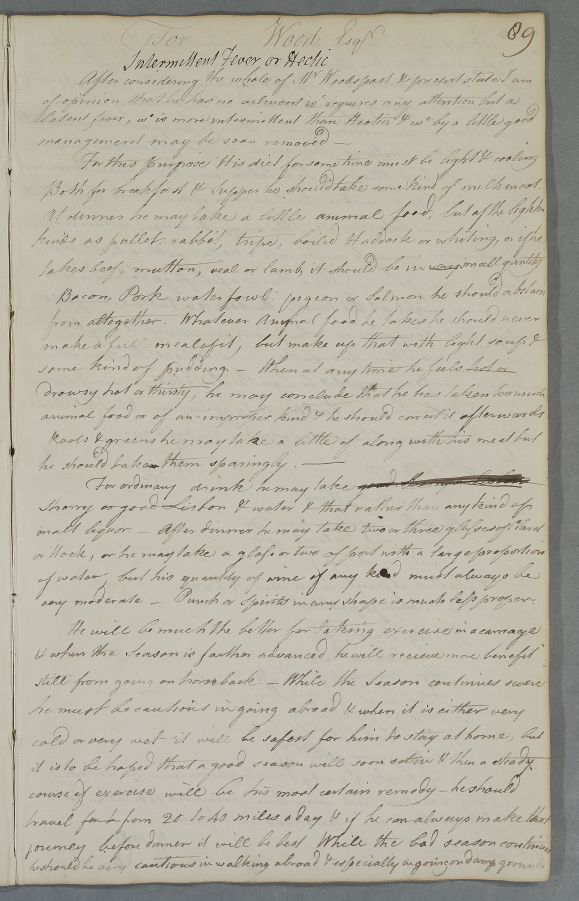 89
For Wood Esqr
Intermittent Fever or Hectic
After considering the whole of Mr Woods past & present state I am
of opinion that he has no ailment wc requires any attention but a
latent fever, wc is more intermittent than Hectic & wc by a little good
management may be soon removed —
For this purpose His diet for some time must be light & cooling
Both for breakfast & supper he should take some kind of milk meat.
At dinner he may take a little animal food, but of the lighter
kinds as pullet, rabbit, tripe, boiled Haddock or whiting, or if he
takes beef, mutton, veal or lamb it should be in very small quantity
Bacon, Pork water fowl pigeon or Salmon he should abstain
from altogether. Whatever Animal food he takes he should never
make a full meal of it, but make up that with light soup &
some kind of pudding — When at any time he feels hot or
drowsy hot or thirsty, he may conclude that he has taken too much
animal food or of an improper kind & he should correct it afterwards
Roots & greens he may take a little of along with his meat but
he should take them sparingly. —
For ordinary drink he may take
Sherry or good Lisbon & water & that rather than any kind of
malt liquor — After dinner he may take two or three glasses of Claret
or Hock, or he may take a glass or two of port with a large proportion
of water, but his quantity of wine of any kind must always be
very moderate — Punch or Spirits in any shape is much less proper.
He will be much the better for taking exercise in a carriage
& when the Season is farther advanced he will recieve more benefit
still from going on horseback. — While the Season continues severe
he must be cautious in going abroad & when it is either very
cold or very wet it will be safest for him to stay at home, but
it is to be hoped that a good season will soon settle & then a steady
course of exercise will be his most certain remedy — he should
travel from 20 to 40 miles a day & if he can always make that
journey before dinner it will be best While the bad season continues
he should be very cautious in walking abroad & especially in going on damp ground